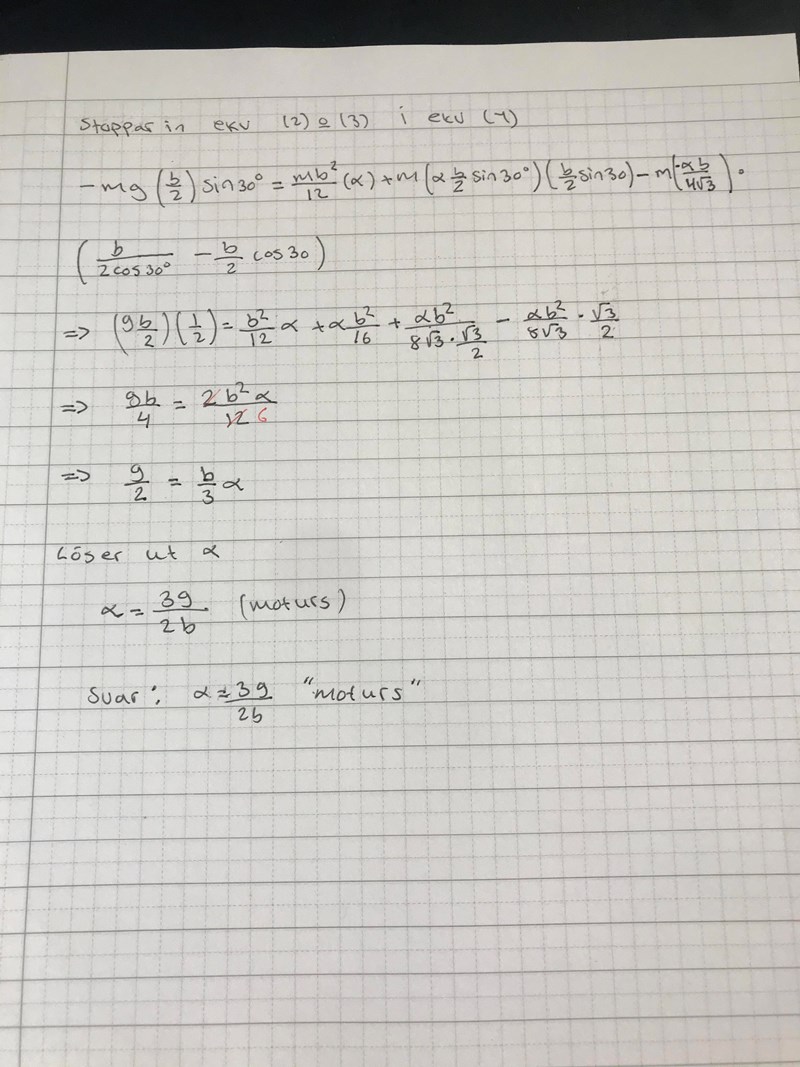 Stoppar in ekv (2) o (3) i ekv (4)
-mg (b/2) sin30° = mb²/12 (α) + m(α b/2 sin30°)(b/2 sin30) - m(-αb/4√3) ·
(b/2cos30° - b/2 cos30)
=> (gb/2)(1/2) = b²/12 α + α b²/16 + αb²/(8√3 · √3/2) - αb²/8√3 · √3/2
=> gb/4 = 2b²α/12 6
=> g/2 = b/3 α
Löser ut α
α = 3g/2b (moturs)
Svar: α = 3g/2b "moturs"